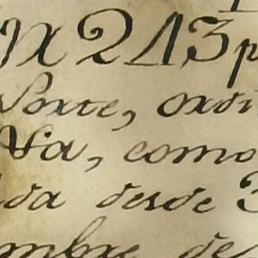 N 2413 p
Norte, ordi
Va, como
da desde 3
mbre de